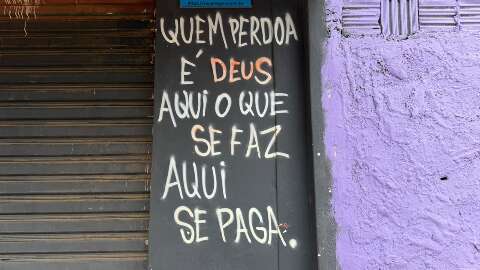 QUEM PERDOA
É DEUS
AQUI O QUE
SE FAZ
AQUI
SE PAGA.